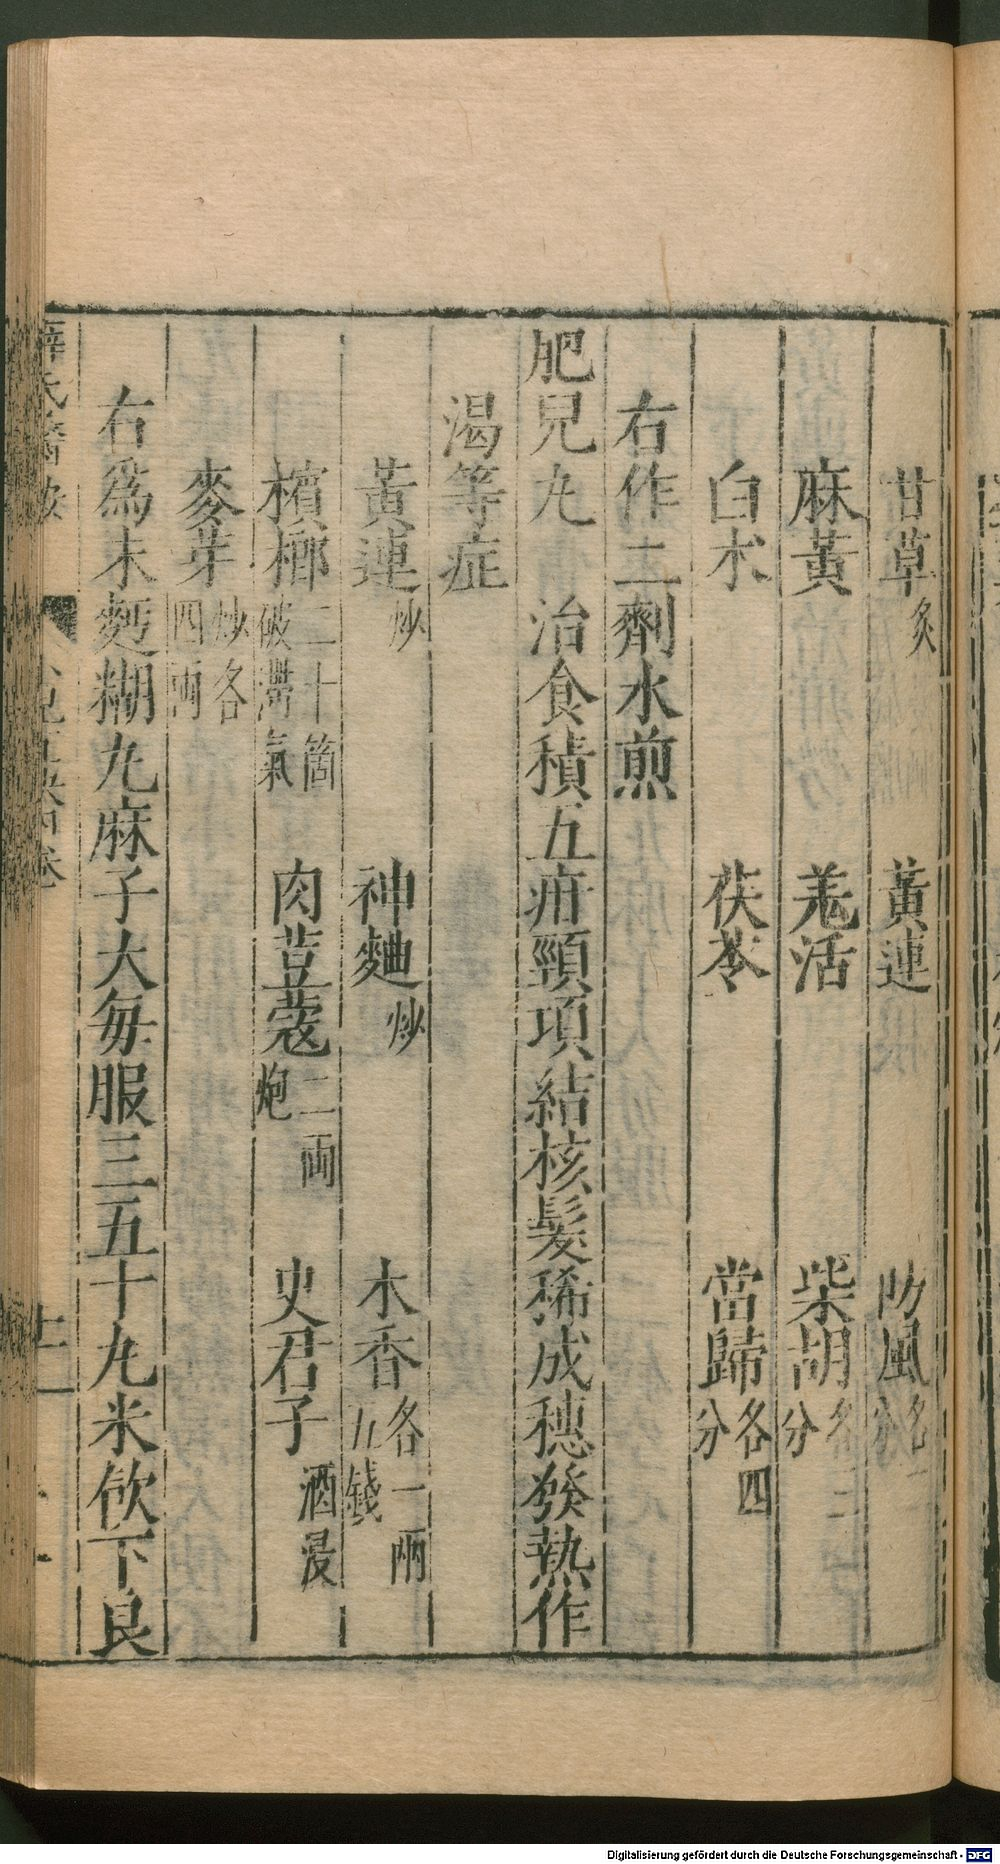 甘草炙　黃連　防風各一分
麻黃　羌活　柴胡各二分
白朮　茯苓　當歸各四分
右作二劑水煎
肥兒丸　治食積五疳頸項結核髮稀成穗發熱作
渴等症
黃連炒　神麯炒　木香各一兩五錢
檳榔二十箇破滯氣　肉荳蔻二兩炮　史君子酒浸
麥芽炒各四兩
右爲末麪糊丸麻子大每服三五十丸米飮下良
薛氏醫按
Digitalisierung gefördert durch die Deutsche Forschungsgemeinschaft - DFG